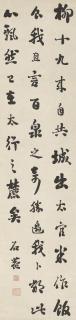 柳十九來自共城出太官米作飯
食我且言百泉之奇勝我卜此
心飄然已在太行之麓矣
石菴